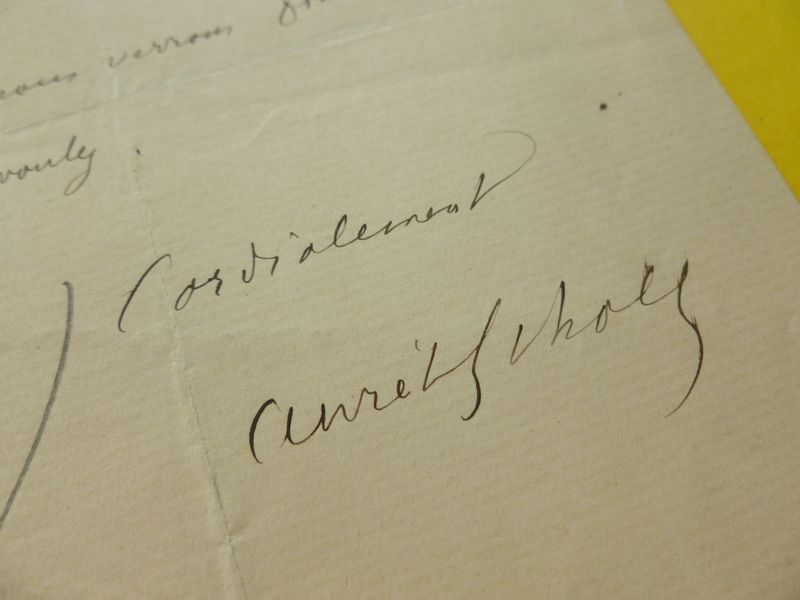 nous verrons
voulez.
Cordialement
Aurélien Scholl